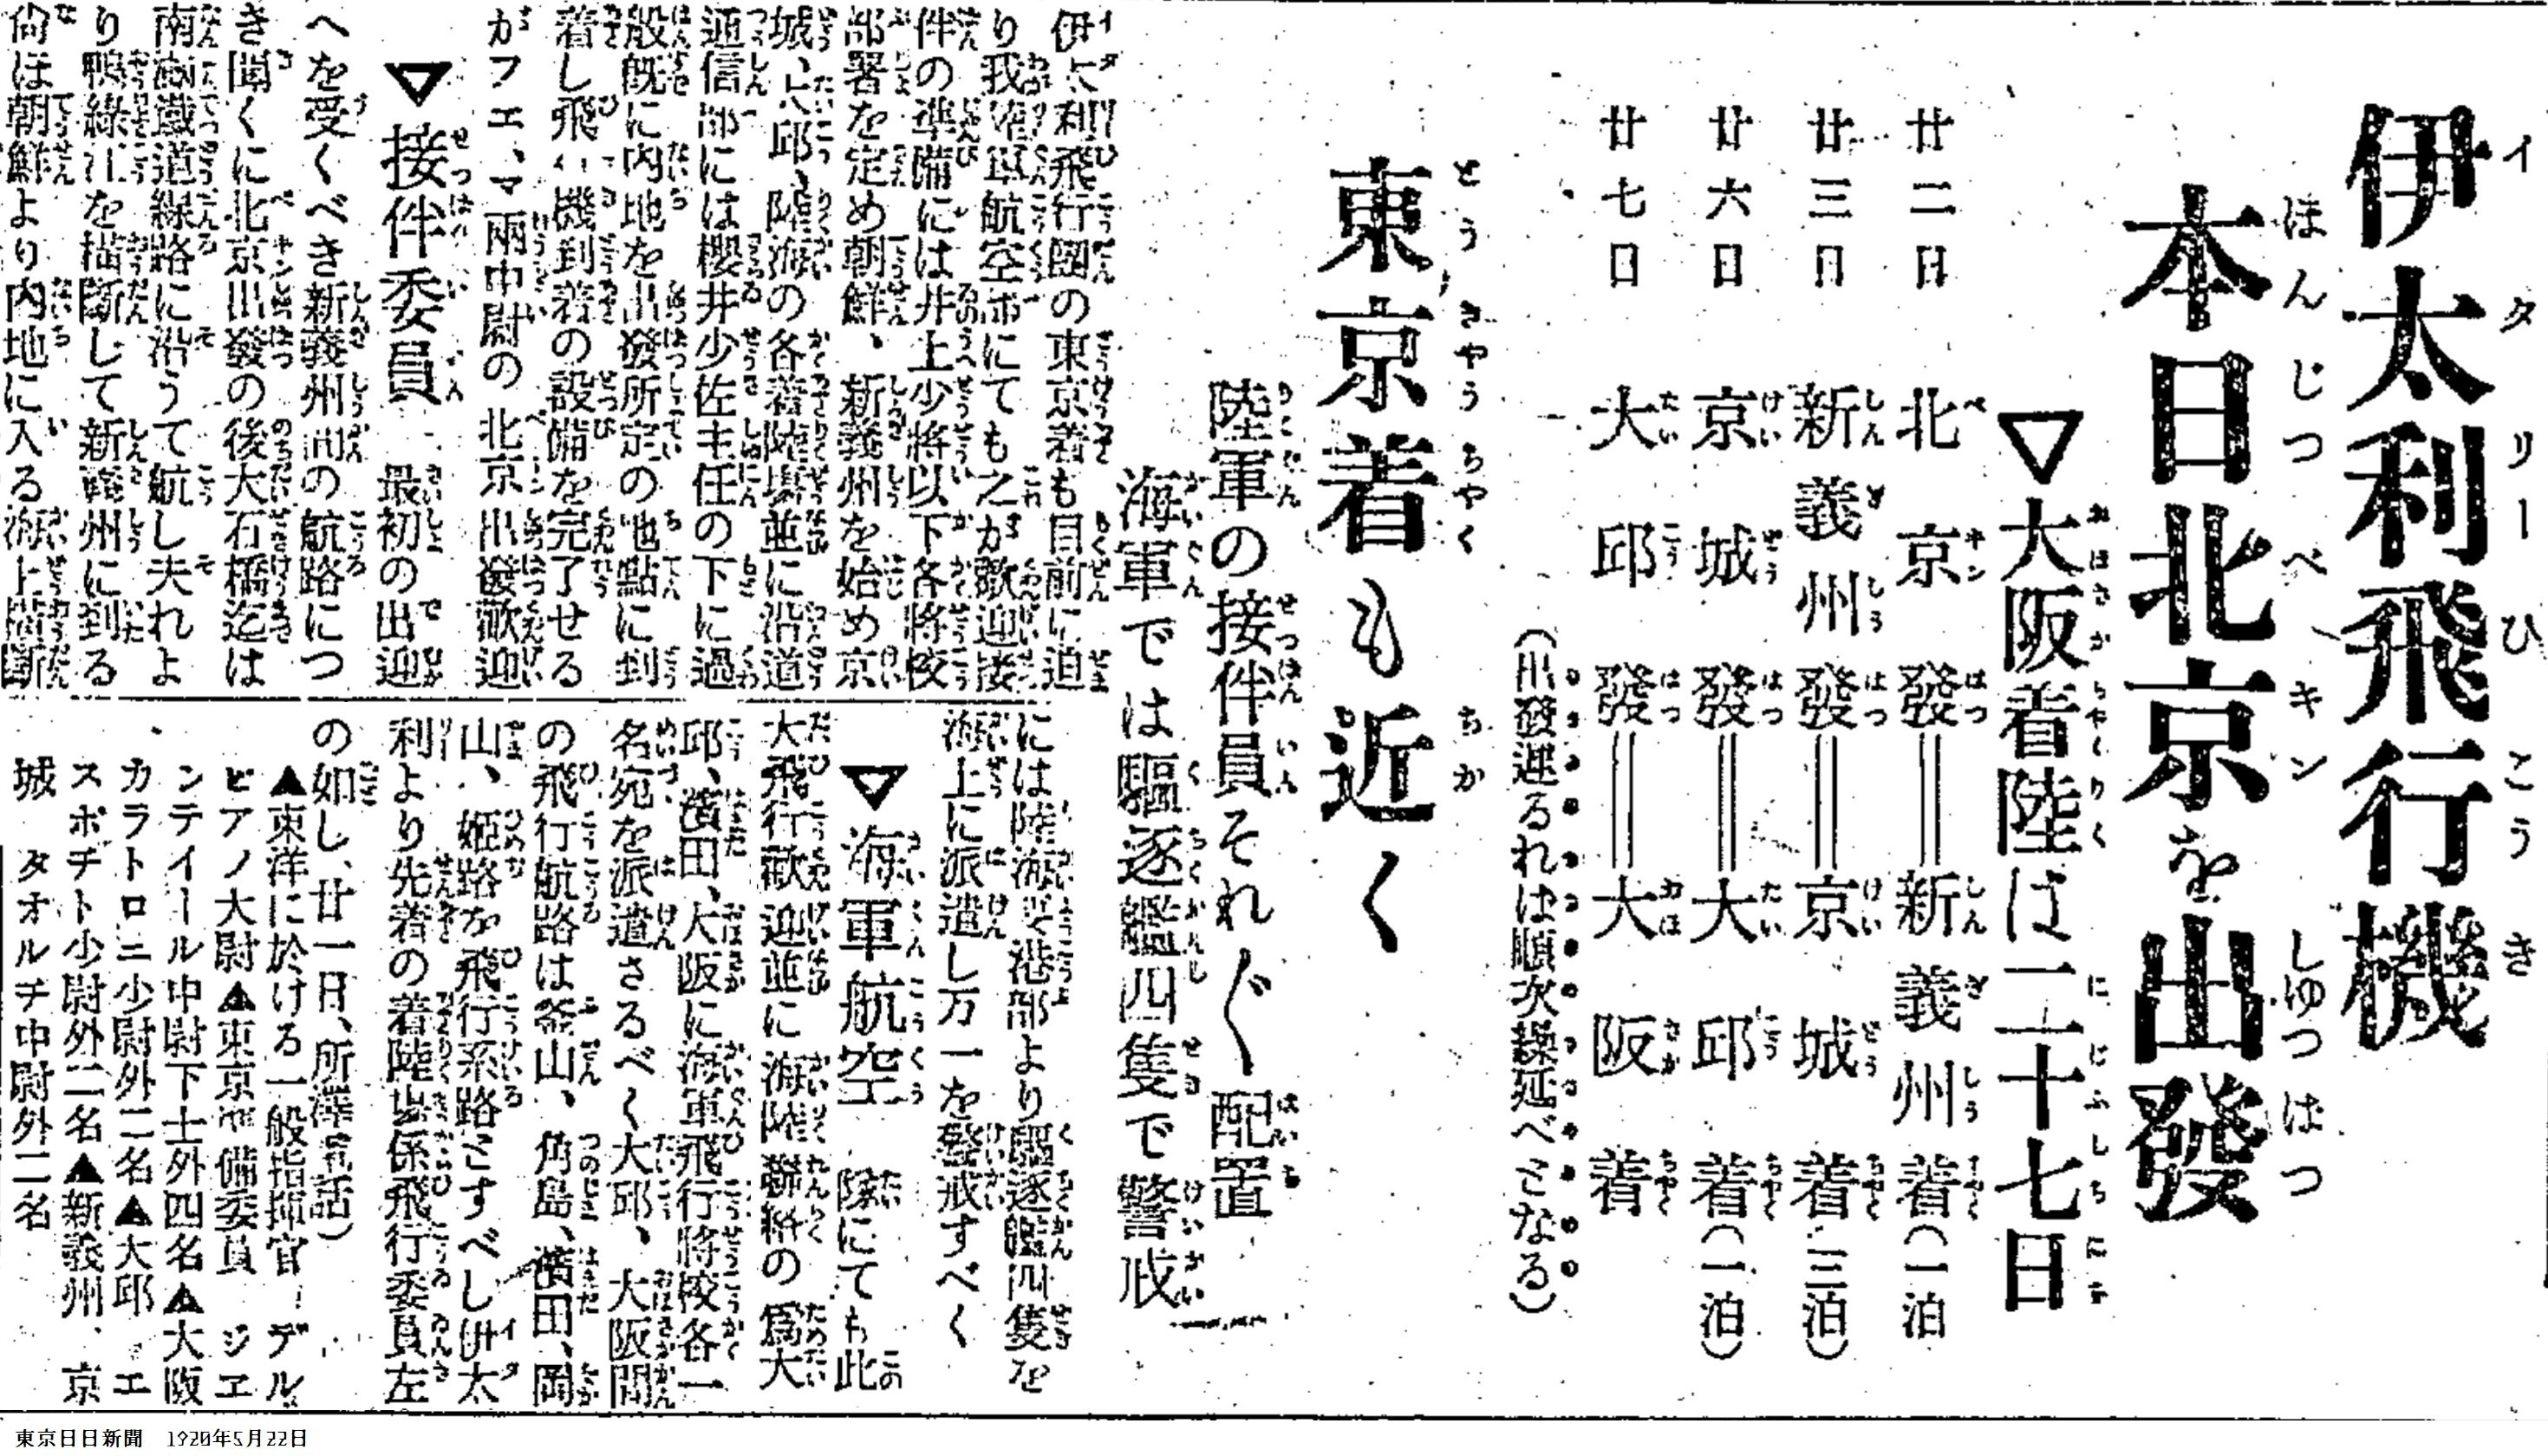 伊太利飛行機
本日北京を出發
▽大阪着陸は二十七日
廿二日 北京發＝新義州着（一泊
廿三日 新義州發＝京城着 三泊）
廿六日 京城發＝大邱着（一泊）
廿七日 大邱發＝大阪着
（出發遲るれは順次繰延べとなる）
東京着も近く
陸軍の接伴員それ〴〵配置
海軍では驅逐艦四隻で警戒
伊太利飛行團の東京着も目前に迫
り我陸軍航空部にても之が歡迎接
伴の準備には井上少將以下各將校
部署を定め朝鮮、新義州を始め京
城、大邱、陸海の各着陸場並に沿道
通信部には櫻井少佐主任の下に過
般既に内地を出發所定の地點に到
着し飛行機到着の設備を完了せる
がフエ、マ兩中尉の北京出發歡迎
▽接伴委員 最初の出迎
へを受くべき新義州間の航路につ
き聞くに北京出發の後大石橋迄は
南滿鐵道線路に沿うて航し夫れよ
り鴨綠江を橫斷して新義州に到る
尙ほ朝鮮より内地に入る海上橫斷
には陸海要港部より驅逐艦四隻を
海上に派遣し万一を警戒すべく
▽海軍航空 隊にても此
大飛行歡迎並に海陸聯絡の爲大
邱、濱田、大阪に海軍飛行將校各一
名宛を派遣さるべく大邱、大阪間
の飛行航路は釜山、角島、濱田、岡
山、姬路を飛行系路とすべし伊太
利より先着の着陸場係飛行委員左
の如し、廿一日、所澤電話）
▲東洋に於ける一般指揮官 デル
ピアノ大尉▲東京準備委員 ジエ
ンテイール中尉下士外四名▲大阪
カラトロニ少尉外二名▲大邱 エ
スポチト少尉外二名▲新義州、京
城 タオルチ中尉外二名
東京日日新聞 1920年5月22日